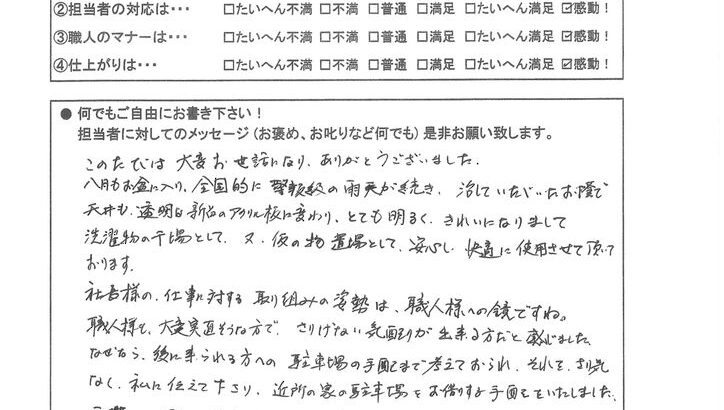 ②担当者の対応は・・・ □たいへん不満 □不満 □普通 □満足 □たいへん満足 ☑感動！
③職人のマナーは・・・ □たいへん不満 □不満 □普通 □満足 □たいへん満足 ☑感動！
④仕上がりは・・・ □たいへん不満 □不満 □普通 □満足 □たいへん満足 ☑感動！
● 何でもご自由にお書き下さい！
担当者に対してのメッセージ（お褒め、お叱りなど何でも）是非お願い致します。
このたびは大変お世話になり、ありがとうございました。
八月もお盆に入り、全国的に警報級の雨天が続き、治していただいたお陰で
天井も、透明な新品のアクリル板に変わり、とても明るく、きれいになりまして
洗濯物の干場として、又、仮の物置場として、安心し、快適に使用させて頂いて
おります。
社長様の、仕事に対する取り組みの姿勢は、職人様への鏡ですね。
職人様も、大変実直そうな方で、さりげない気配りが出来る方だと感じました。
なぜなら、後に来られる方への駐車場の手配まで考えておられ、それも、さり気
なく、私に伝えて下さり、近所の家の駐車場をお借りする手配をいたしました。